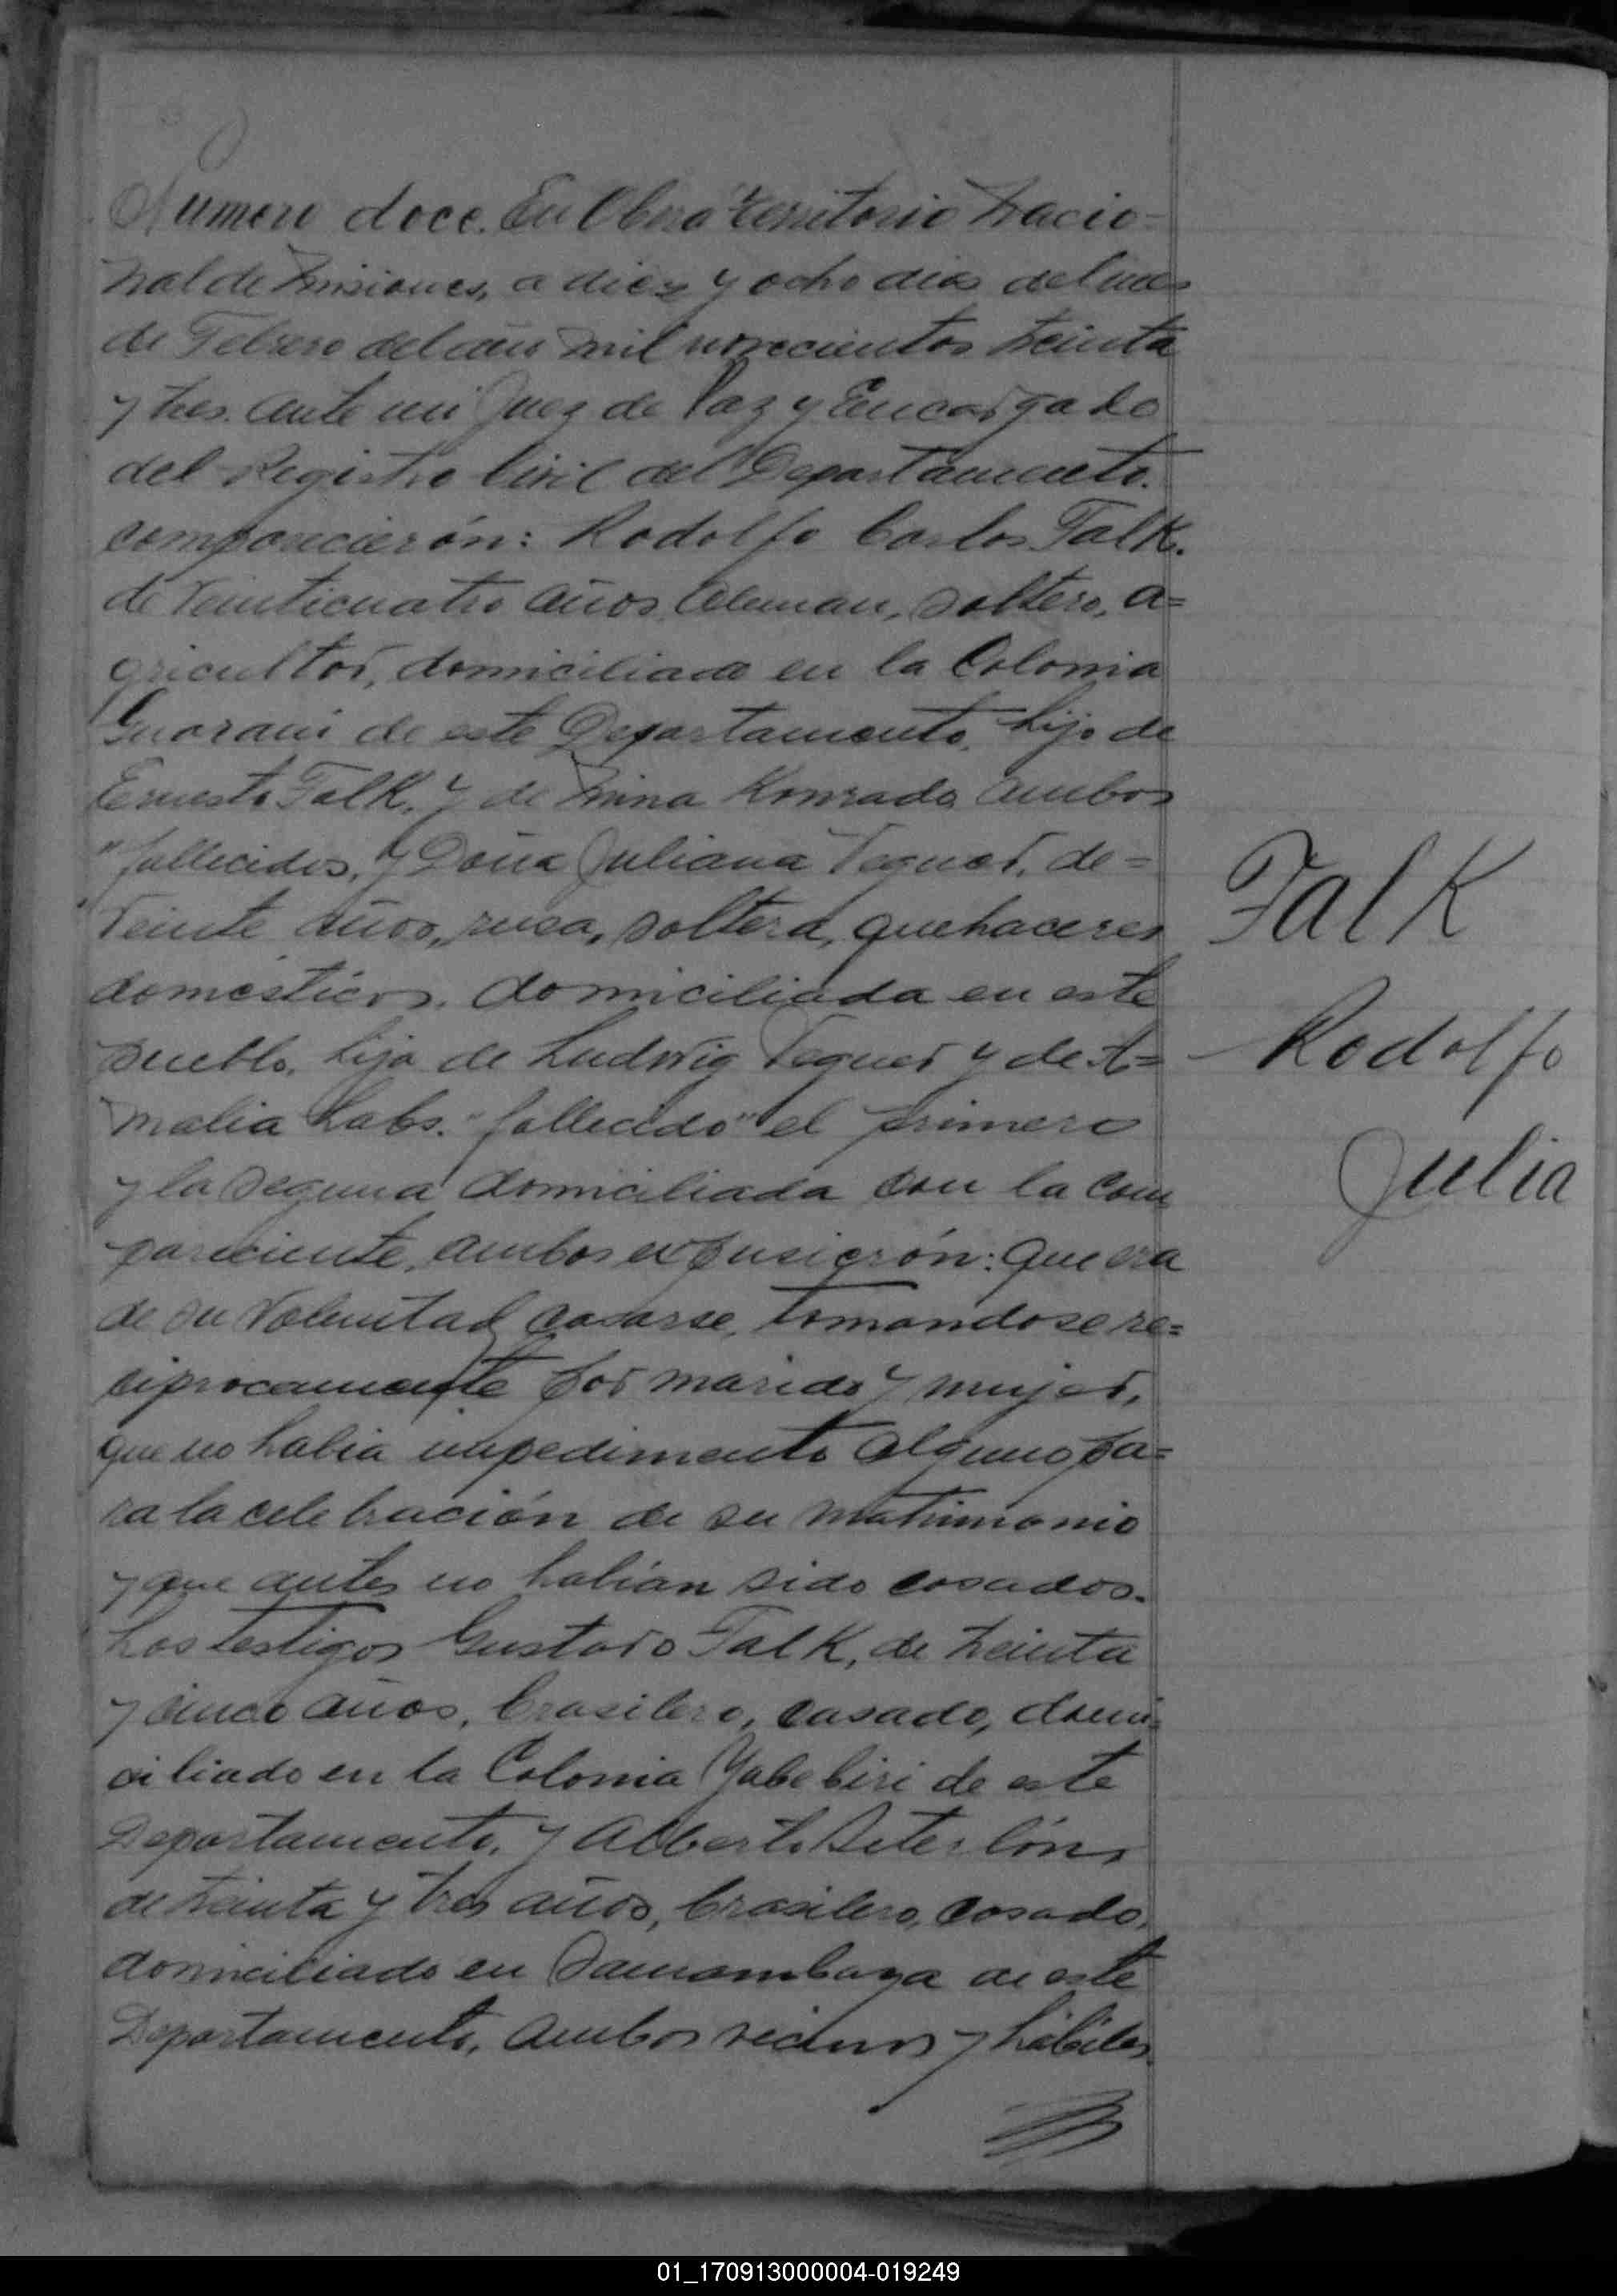 Numero doce. En Obera territorio Nacio-
nal de Misiones, a diez y ocho dias del mes
de Febrero del año mil novecientos treinta
y tres. Ante mi Juez de Paz y Encargado
del Registro Civil del Departamento.
comparecierón: Rodolfo Carlos Falk.
de veinticuatro años, Aleman, soltero, a=
gricultor, domiciliado en la Colonia
Guarani de este Departamento, hijo de
Ernesto Falk, y de Mina Konrado, ambos
"fallecidos, y Doña Juliana Tegner, de=
veinte años, rusa, soltera, quehaceres
domesticos, domiciliada en este
pueblo, hija de Ludwig Tegner y de A=
malia Labs. "fallecido" el primero
y la seguna domiciliada con la com
pareciente, ambos expusierón: que era
de su voluntad casarse, tomandose re=
ciprocamente por marido y mujer,
que no habia impedimento alguno pa=
ra la celebración de su matrimonio
y que antes no habian sido casados.
Los testigos Gustavo Falk, de treinta
y cinco años, brasilero, casado, domi=
ciliado en la Colonia Yabebiri de este
Departamento, y Alberto
de treinta y tres años, brasilero, casado,
domiciliado en Samambaya de este
Departamento, ambos vecinos y hábiles
Falk
Rodolfo
Julia
01_170913000004-019249